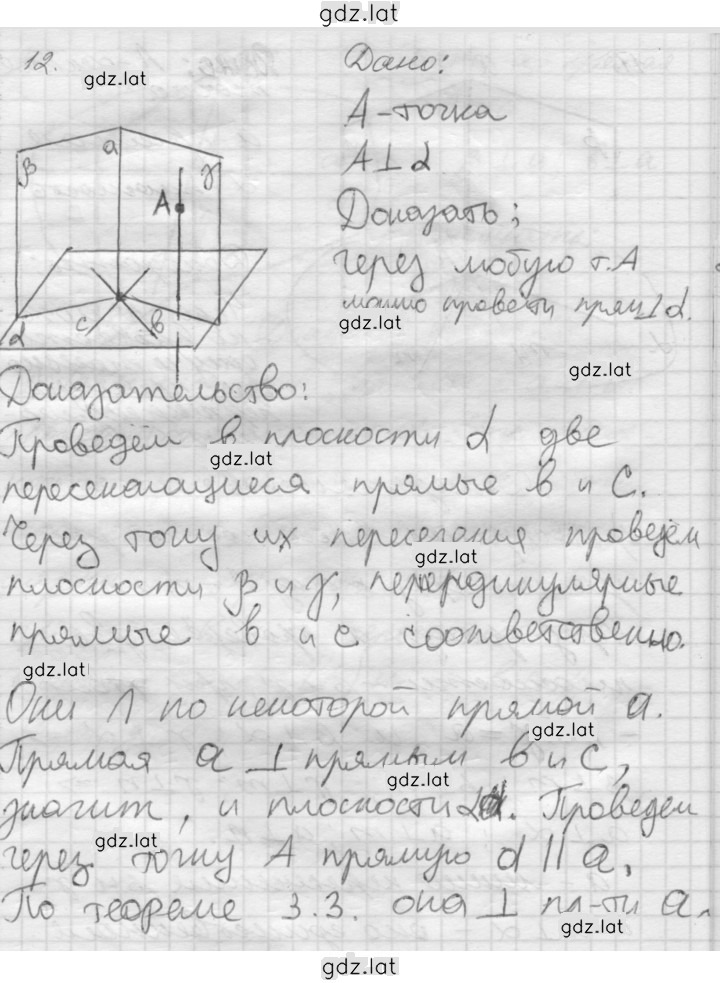 gdz.lat
12.
gdz.lat
Дано:
A - точка
A ⊥ α
Доказать;
через любую т. А
можно провести прям ⊥ α.
gdz.lat
β
a
γ
A
α
c
в
gdz.lat
Доказательство:
Проведём в плоскости α две
gdz.lat
пересекающиеся прямые в и с.
Через точку их пересечения проведём
gdz.lat
плоскости β и γ, перпердикулярные
прямые в и с соответственно.
gdz.lat
Они ∩ по некоторой прямой a.
gdz.lat
Прямая a ⊥ прямым в и с,
gdz.lat
значит, и плоскости α. Проведем
gdz.lat
через точку А прямую d || a,
По теореме 3.3. она ⊥ пл-ти α.
gdz.lat
gdz.lat